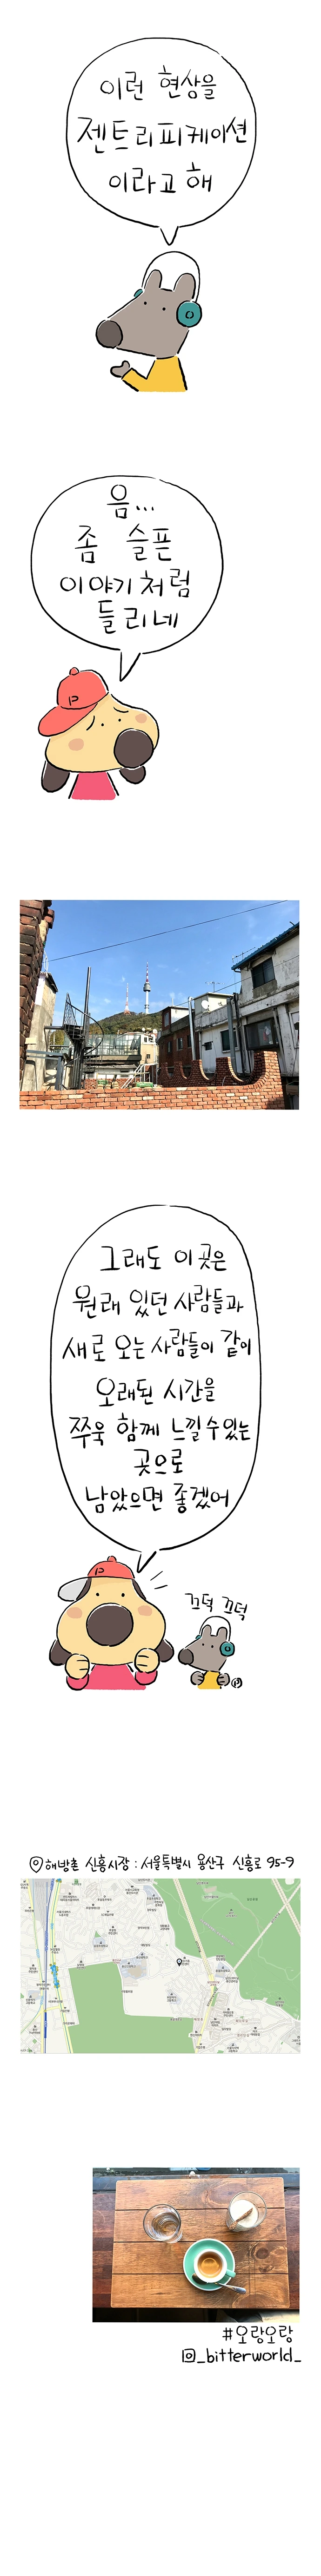 이런 현상을
젠트리피케이션
이라고 해
음...
좀 슬픈
이야기처럼
들리네
P
그래도 이곳은
원래 있던 사람들과
새로 오는 사람들이 같이
오래된 시간을
쭈욱 함께 느낄 수 있는
곳으로
남았으면 좋겠어
끄덕 끄덕
해방촌 신흥시장 : 서울특별시 용산구 신흥로 95-9
#오랑오랑
_bitterworld_